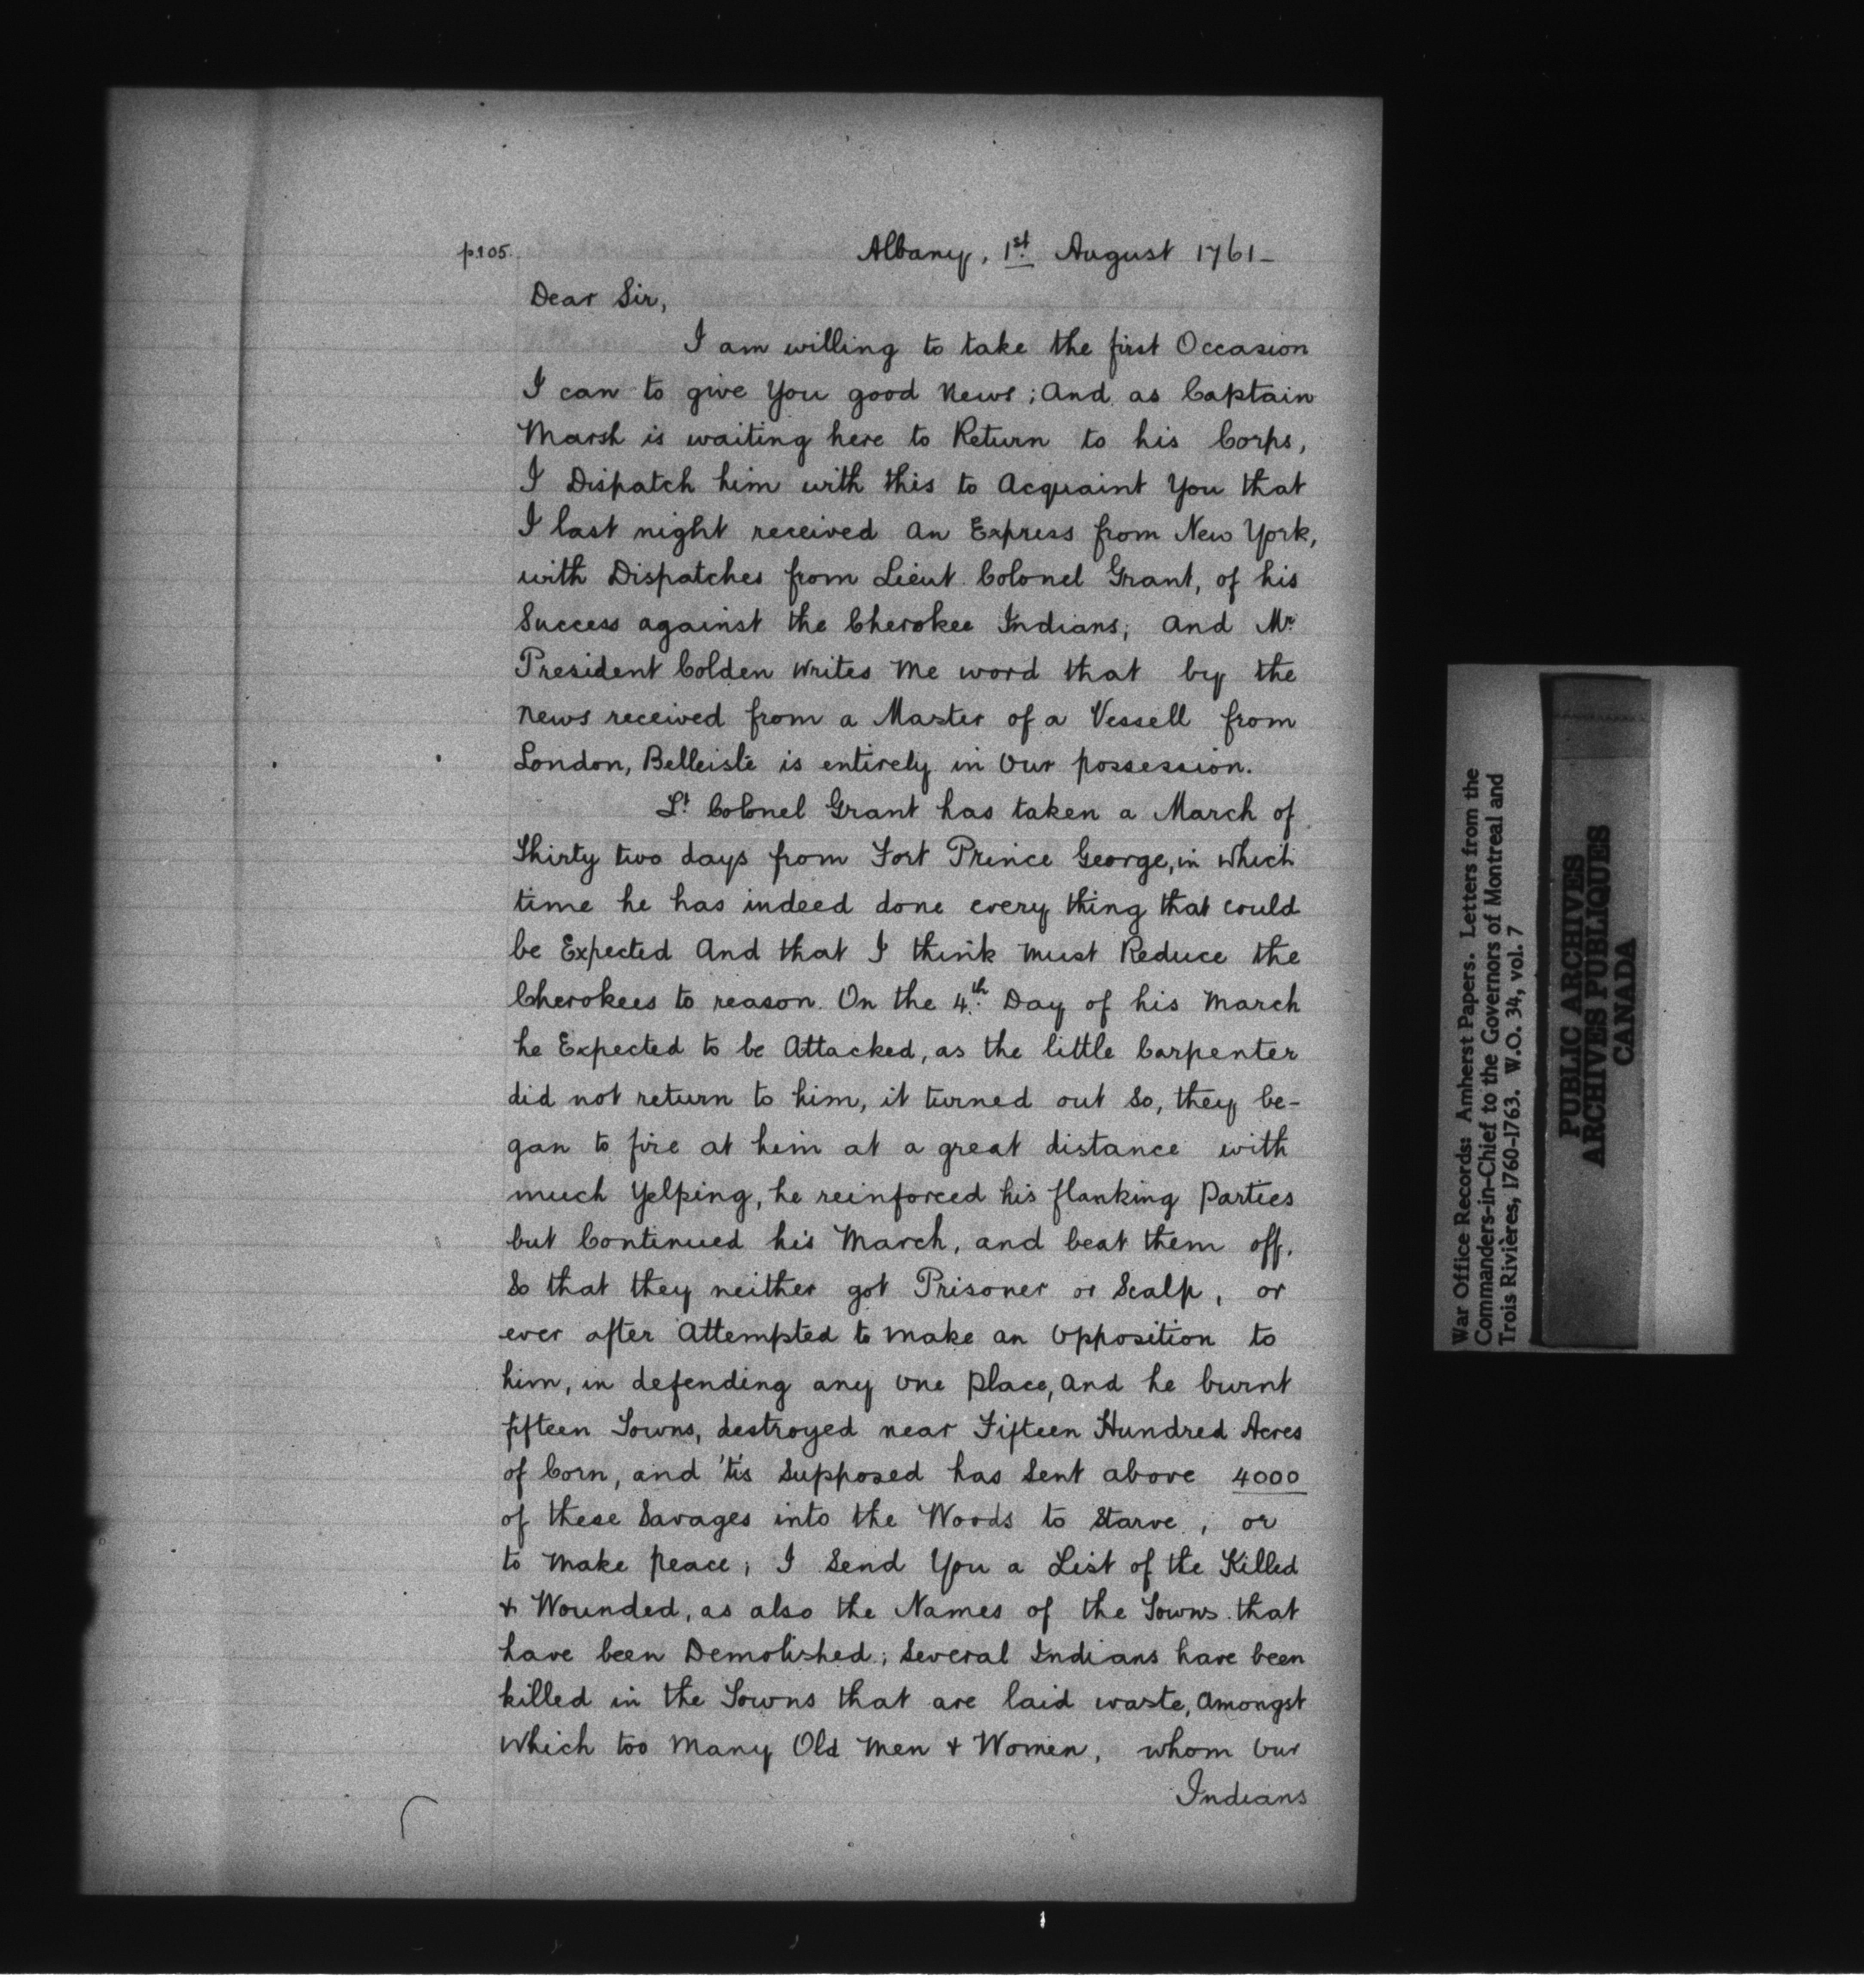 p.105.
Albany, 1st August 1761_
Dear Sir,
I am willing to take the first Occasion
I can to give You good News; And as Captain
Marsh is waiting here to Return to his Corps,
I Dispatch him with this to Acquaint You that
I last night received An Express from New York,
with Dispatches from Lieut. Colonel Grant, of his
Success against the Cherokee Indians; And Mr.
President Colden Writes Me word that by the
News received from a Master of a Vessell from
London, Belleisle is entirely in Our possession.
Lt. Colonel Grant has taken a March of
Thirty two days from Fort Prince George, in Which
time he has indeed done every thing that could
be Expected And that I think Must Reduce the
Cherokees to reason. On the 4th. Day of his March
he Expected to be Attacked, as the little Carpenter
did not return to him, it turned out So, they be-
gan to fire at him at a great distance with
much Yelping, he reinforced his flanking Parties
but Continued his March, and beat them off.
So that they neither got Prisoner or Scalp, or
ever after Attempted to Make an Opposition to
him, in defending any One place, And he burnt
fifteen Towns, destroyed near Fifteen Hundred Acres
of Corn, and 'tis Supposed has Sent above 4000
of these Savages into the Woods to Starve, or
to Make Peace; I Send You a List of the Killed
& Wounded, as also the Names of the Towns that
have been Demolished; Several Indians have been
killed in the Towns that are laid waste, Amongst
Which too Many Old Men & Women, whom Our
Indians
War Office Records: Amherst Papers. Letters from the
Commanders-in-Chief to the Governors of Montreal and
Trois Rivières, 1760-1763. W.O. 34, vol. 7
PUBLIC ARCHIVES
ARCHIVES PUBLIQUES
CANADA